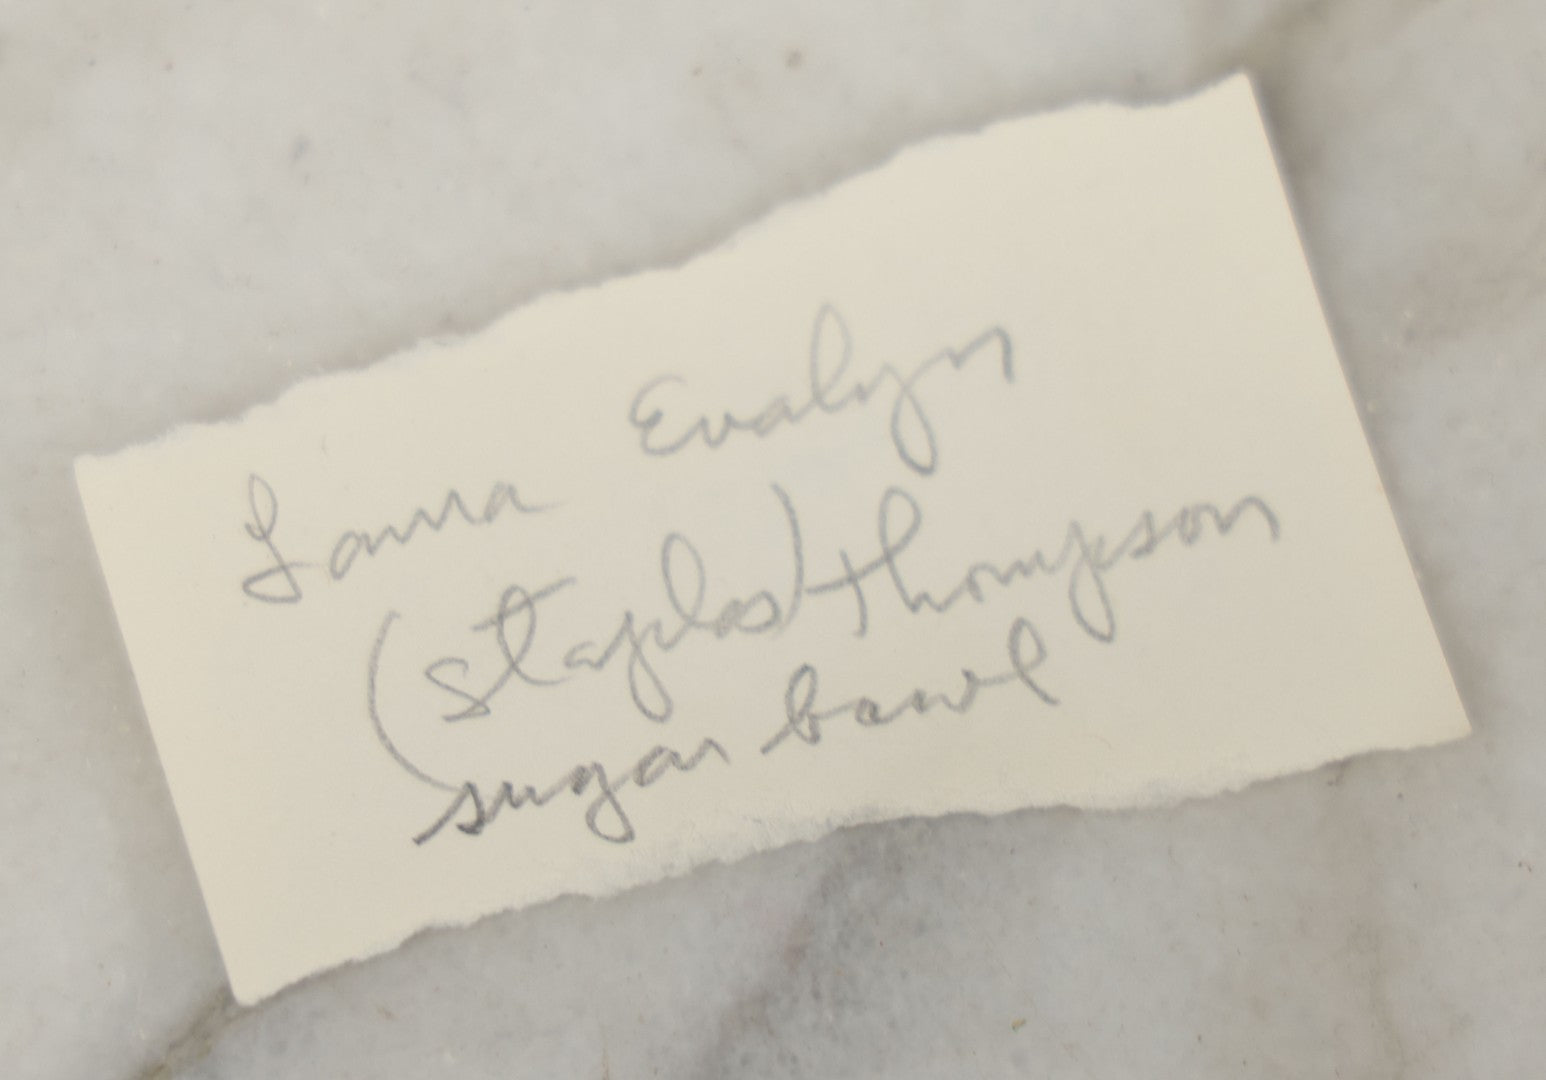 Laura Evalyn
(Staples) Thompson
sugar bowl